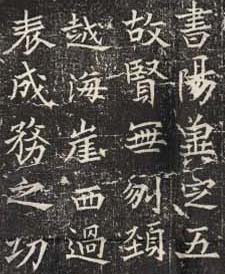 書陽兼定五
故賢無刎頚
越海崖西過
表成務之功